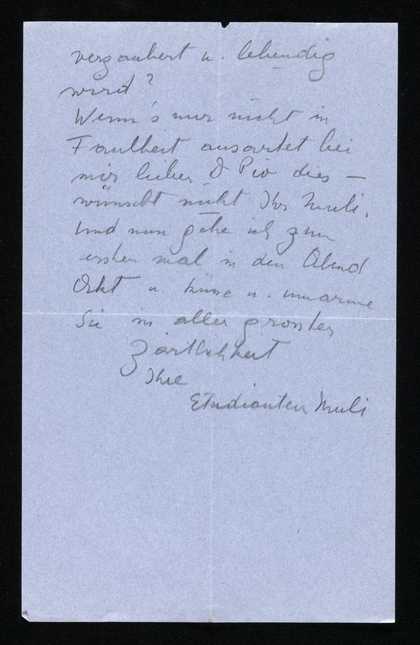 verzaubert u. lebendig
wird?
Wenn's nur nicht in
Faulheit ausartet bei
mir lieber D Pio dies –
wünscht nicht Ihr Muli.
Und nun gehe ich zum
ersten mal in den Abend
u. u. umarme
Sie in aller grosster
Zärtlichkeit
Ihre
Etudianten Muli